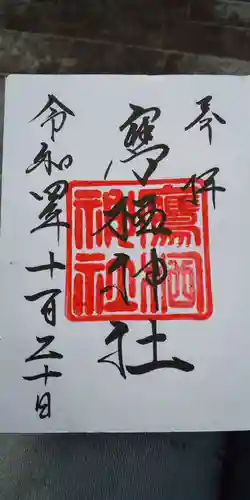 奉拝
鷹栖神社
鷹栖
神社
令和四年十一月二十日